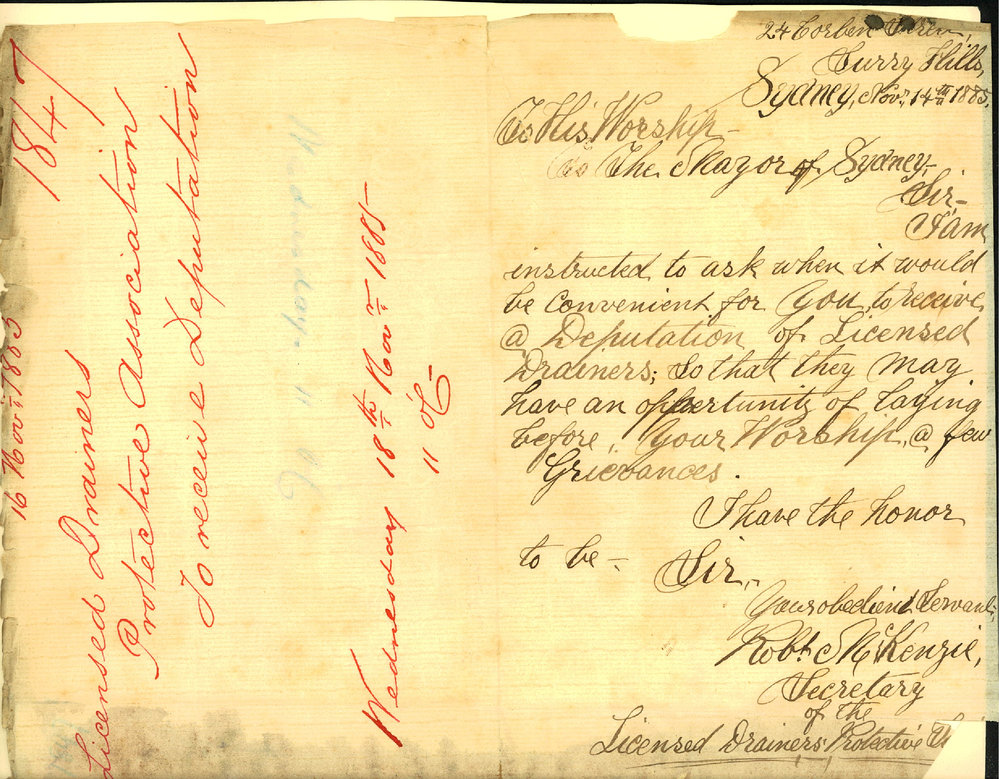 24 Corben Street,
Surry Hills,
Sydney, Novr, 14th 1885,
To His Worship
The Mayor of Sydney,
Sir,
I am
instructed to ask when it would
be convenient for You, to receive
a Deputation of Licensed
Drainers; So that they may
have an oppertunity of laying
before, Your Worship, a few
Grievances.
I have the honor
to be –
Sir,
Your obedient Servant,
Robt. McKenzie,
Secretary
of the
Licensed Drainers Protective
1847
16 Novr 1885
Licensed Drainers
Protective Association
To receive Deputation
Wednesday 18th Novr 1885
11 o'C